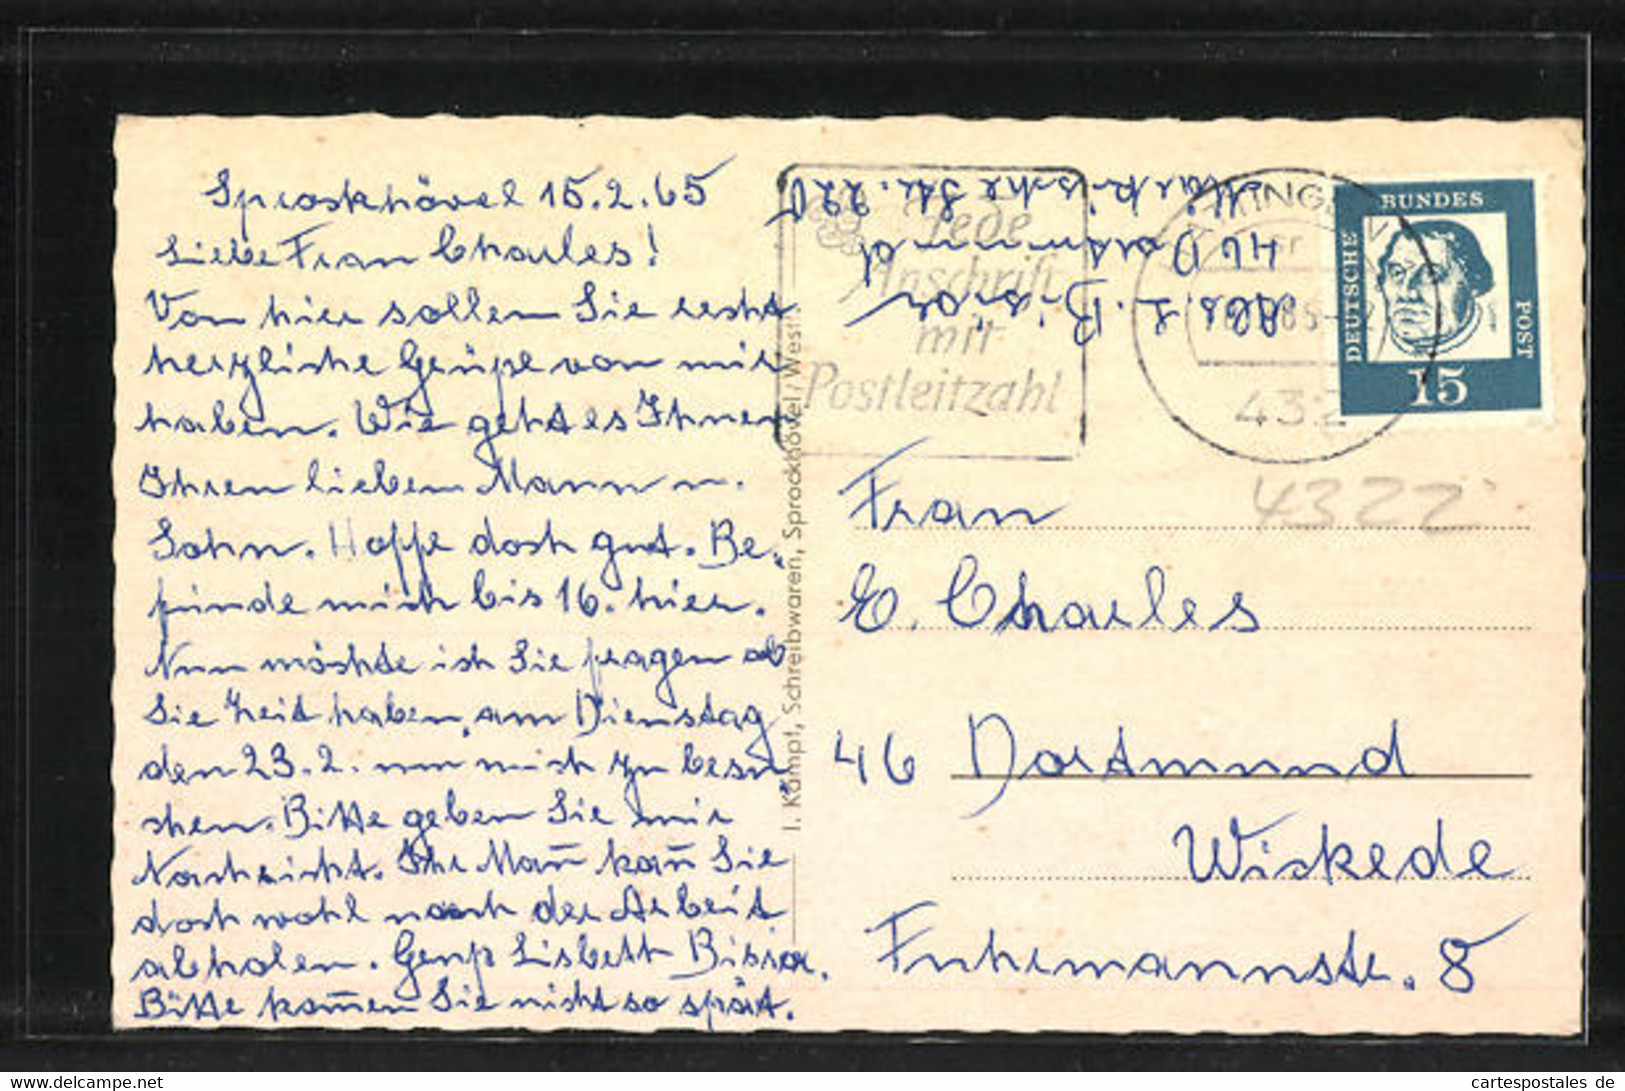 Sprockhövel 15.2.65
Liebe Frau Charles!
Von hier sollen Sie recht
herzliche Grüße von mir
haben. Wie geht es Ihnen
Ihren lieben Mann u.
Sohn. Hoffe doch gut. Be-
finde mich bis 16. hier.
Nun möchte ich Sie fragen ob
Sie Zeit haben, am Dienstag
den 23.2. um mich zu besu-
chen. Bitte geben Sie mir
Nachricht. Ihr Mañ kañ Sie
doch wohl nach der Arbeit
abholen. Gruß Lisbeth
Bitte kom̃en Sie nicht so spät.
I. Kämpf, Schreibwaren, Sprockhövel / Westf.
Abs. L.
46 Dortmund
Märkische Str. 220
Jede
Anschrift
mit
Postleitzahl
432
DEUTSCHE
BUNDES
POST
15
4322
Frau
E. Charles
46 Dortmund
Wickede
Fuhrmannstr. 8
cartespostales de
www.delcampe.net